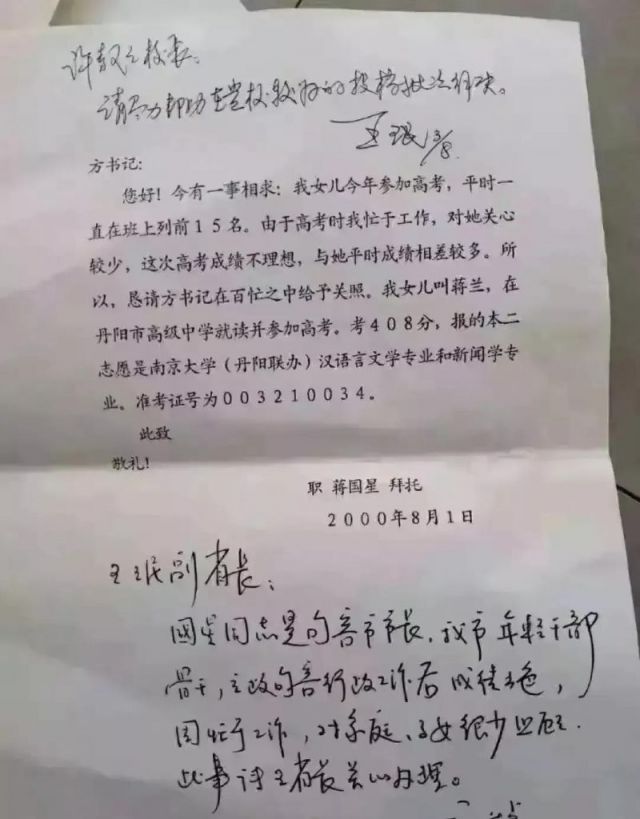 许敖敖校长：
请尽力帮助在贵校较好的投档批次解决。
王珉 3/8
方书记：
您好！今有一事相求：我女儿今年参加高考，平时一
直在班上列前15名。由于高考时我忙于工作，对她关心
较少，这次高考成绩不理想，与她平时成绩相差较多。所
以，恳请方书记在百忙之中给予关照。我女儿叫蒋兰，在
丹阳市高级中学就读并参加高考。考408分，报的本二
志愿是南京大学（丹阳联办）汉语言文学专业和新闻学专
业。准考证号为003210034。
此致
敬礼！
职 蒋国星 拜托
2000年8月1日
王珉副省长：
国星同志是句容市市长，我市年轻干部
骨干，主政句容行政工作后成绩出色，
因忙于工作，对家庭、子女很少照顾.
此事请王省长关心办理。